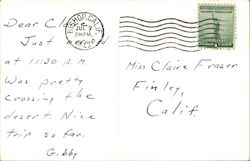 Dear Cl
Just
at 11:30 A.M
Was pretty
crossing the
desert Nice
trip so far.
Gibby
BISHOP CALIF.
JUL 2
PM
Miss Claire Fraser
Finley,
Calif